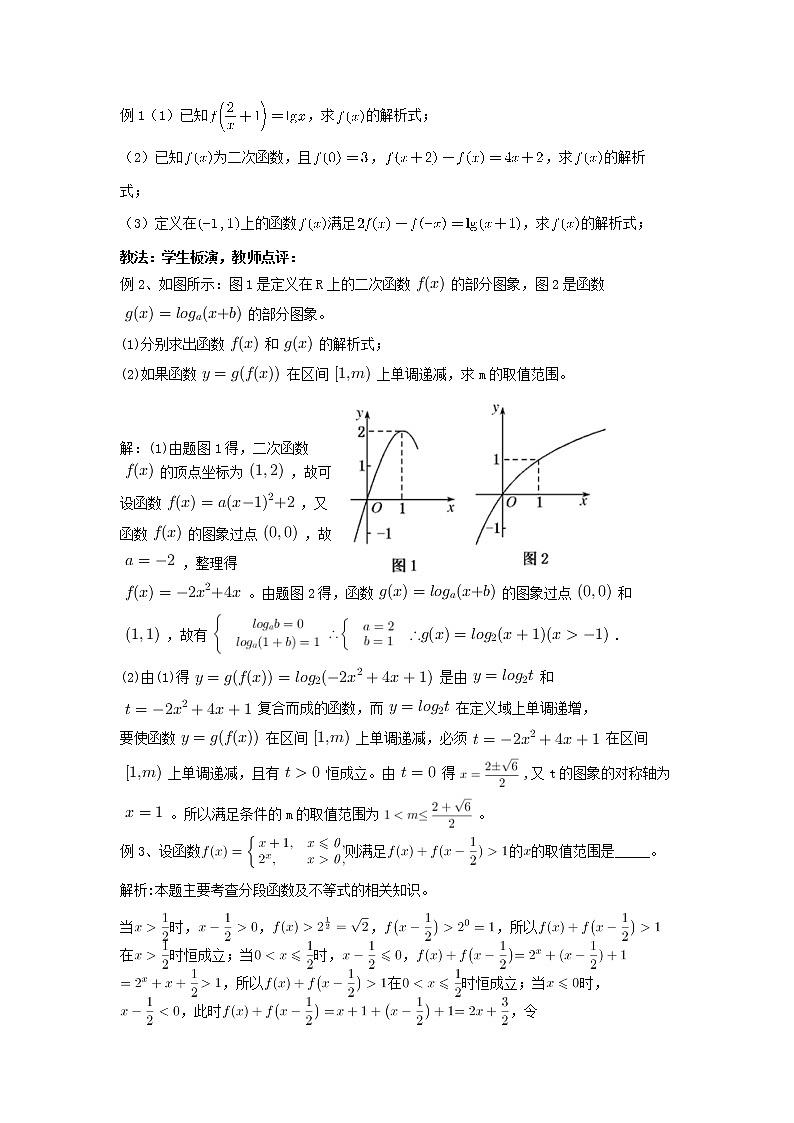 例1（1）已知f(2/x+1)=lgx，求f(x)的解析式；
（2）已知f(x)为二次函数，且f(0)=3，f(x+2)-f(x)=4x+2，求f(x)的解析
式；
（3）定义在(-1,1)上的函数f(x)满足2f(x)-f(-x)=lg(x+1)，求f(x)的解析式；
教法：学生板演，教师点评：
例2、如图所示：图1是定义在R上的二次函数 f(x) 的部分图象，图2是函数
g(x)=logₐ(x+b) 的部分图象。
(1)分别求出函数 f(x) 和 g(x) 的解析式；
(2)如果函数 y=g(f(x)) 在区间 [1,m) 上单调递减，求m的取值范围。
解：(1)由题图1得，二次函数
f(x) 的顶点坐标为 (1,2) ，故可
设函数 f(x)=a(x-1)²+2 ，又
函数 f(x) 的图象过点 (0,0) ，故
a=-2 ，整理得
y
2
1
O 1 x
-1
图1
y
1
O 1 x
-1
图2
f(x)=-2x²+4x 。由题图2得，函数 g(x)=logₐ(x+b) 的图象过点 (0,0) 和
(1,1) ，故有 { logₐb=0 logₐ(1+b)=1 ∴{ a=2 b=1 ∴g(x)=log₂(x+1)(x>-1) .
(2)由(1)得 y=g(f(x))=log₂(-2x²+4x+1) 是由 y=log₂t 和
t=-2x²+4x+1 复合而成的函数，而 y=log₂t 在定义域上单调递增，
要使函数 y=g(f(x)) 在区间 [1,m) 上单调递减，必须 t=-2x²+4x+1 在区间
[1,m) 上单调递减，且有 t>0 恒成立。由 t=0 得 x=(2±√6)/2 ,又t的图象的对称轴为
x=1 。所以满足条件的m的取值范围为 1<m≤(2+√6)/2 。
例3、设函数f(x)={x+1, x⩽0, 2ˣ, x>0,则满足f(x)+f(x-1/2)>1的x的取值范围是_____。
解析:本题主要考查分段函数及不等式的相关知识。
当x>1/2时，x-1/2>0，f(x)>2^(1/2)=√2，f(x-1/2)>2⁰=1，所以f(x)+f(x-1/2)>1
在x>1/2时恒成立；当0<x⩽1/2时，x-1/2⩽0，f(x)+f(x-1/2)=2ˣ+(x-1/2)+1
=2ˣ+x+1/2>1，所以f(x)+f(x-1/2)>1在0<x⩽1/2时恒成立；当x⩽0时，
x-1/2<0，此时f(x)+f(x-1/2)=x+1+(x-1/2)+1=2x+3/2，令